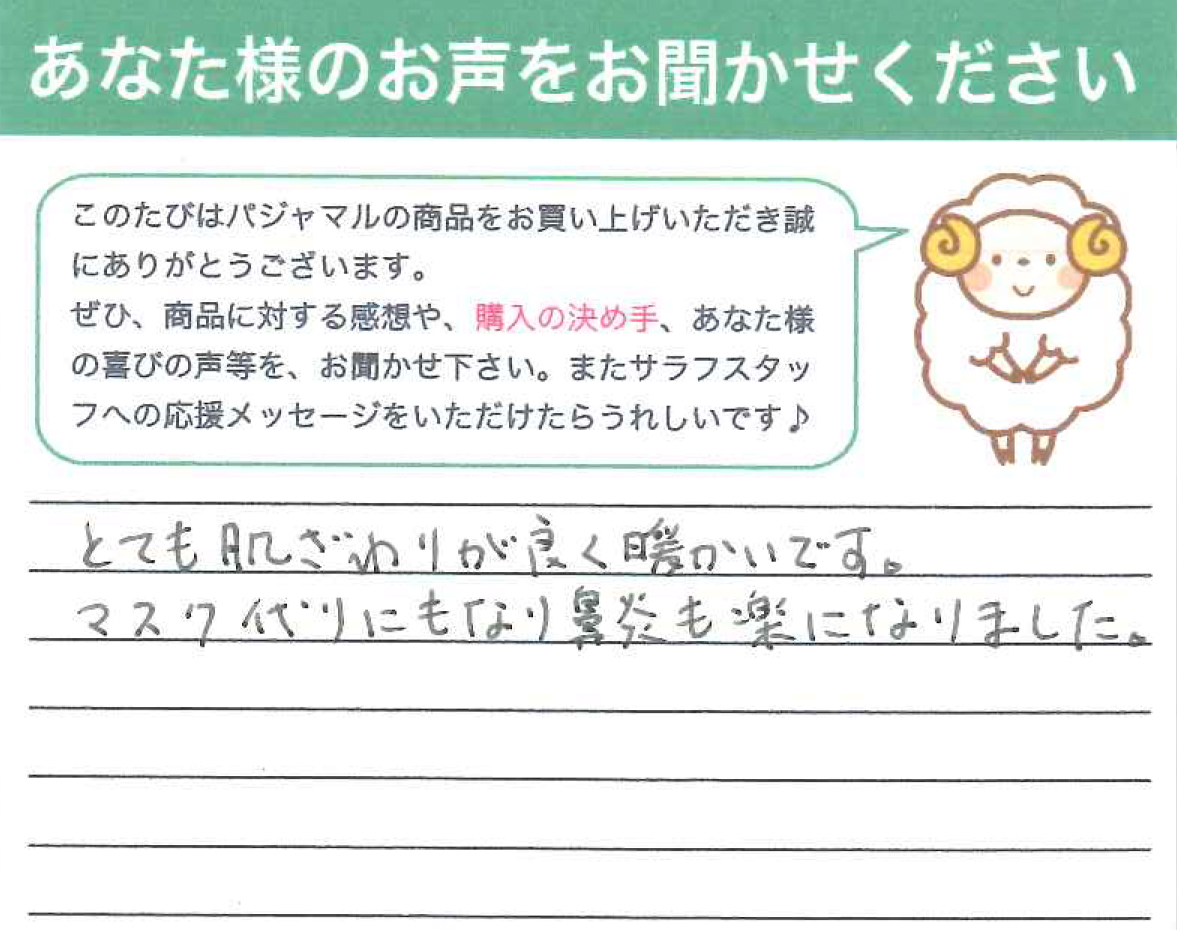 あなた様のお声をお聞かせください
このたびはパジャマルの商品をお買い上げいただき誠
にありがとうございます。
ぜひ、商品に対する感想や、購入の決め手、あなた様
の喜びの声等を、お聞かせ下さい。またサラフスタッ
フへの応援メッセージをいただけたらうれしいです♪
とても肌ざわりが良く暖かいです。
マスク代りにもなり鼻炎も楽になりました。